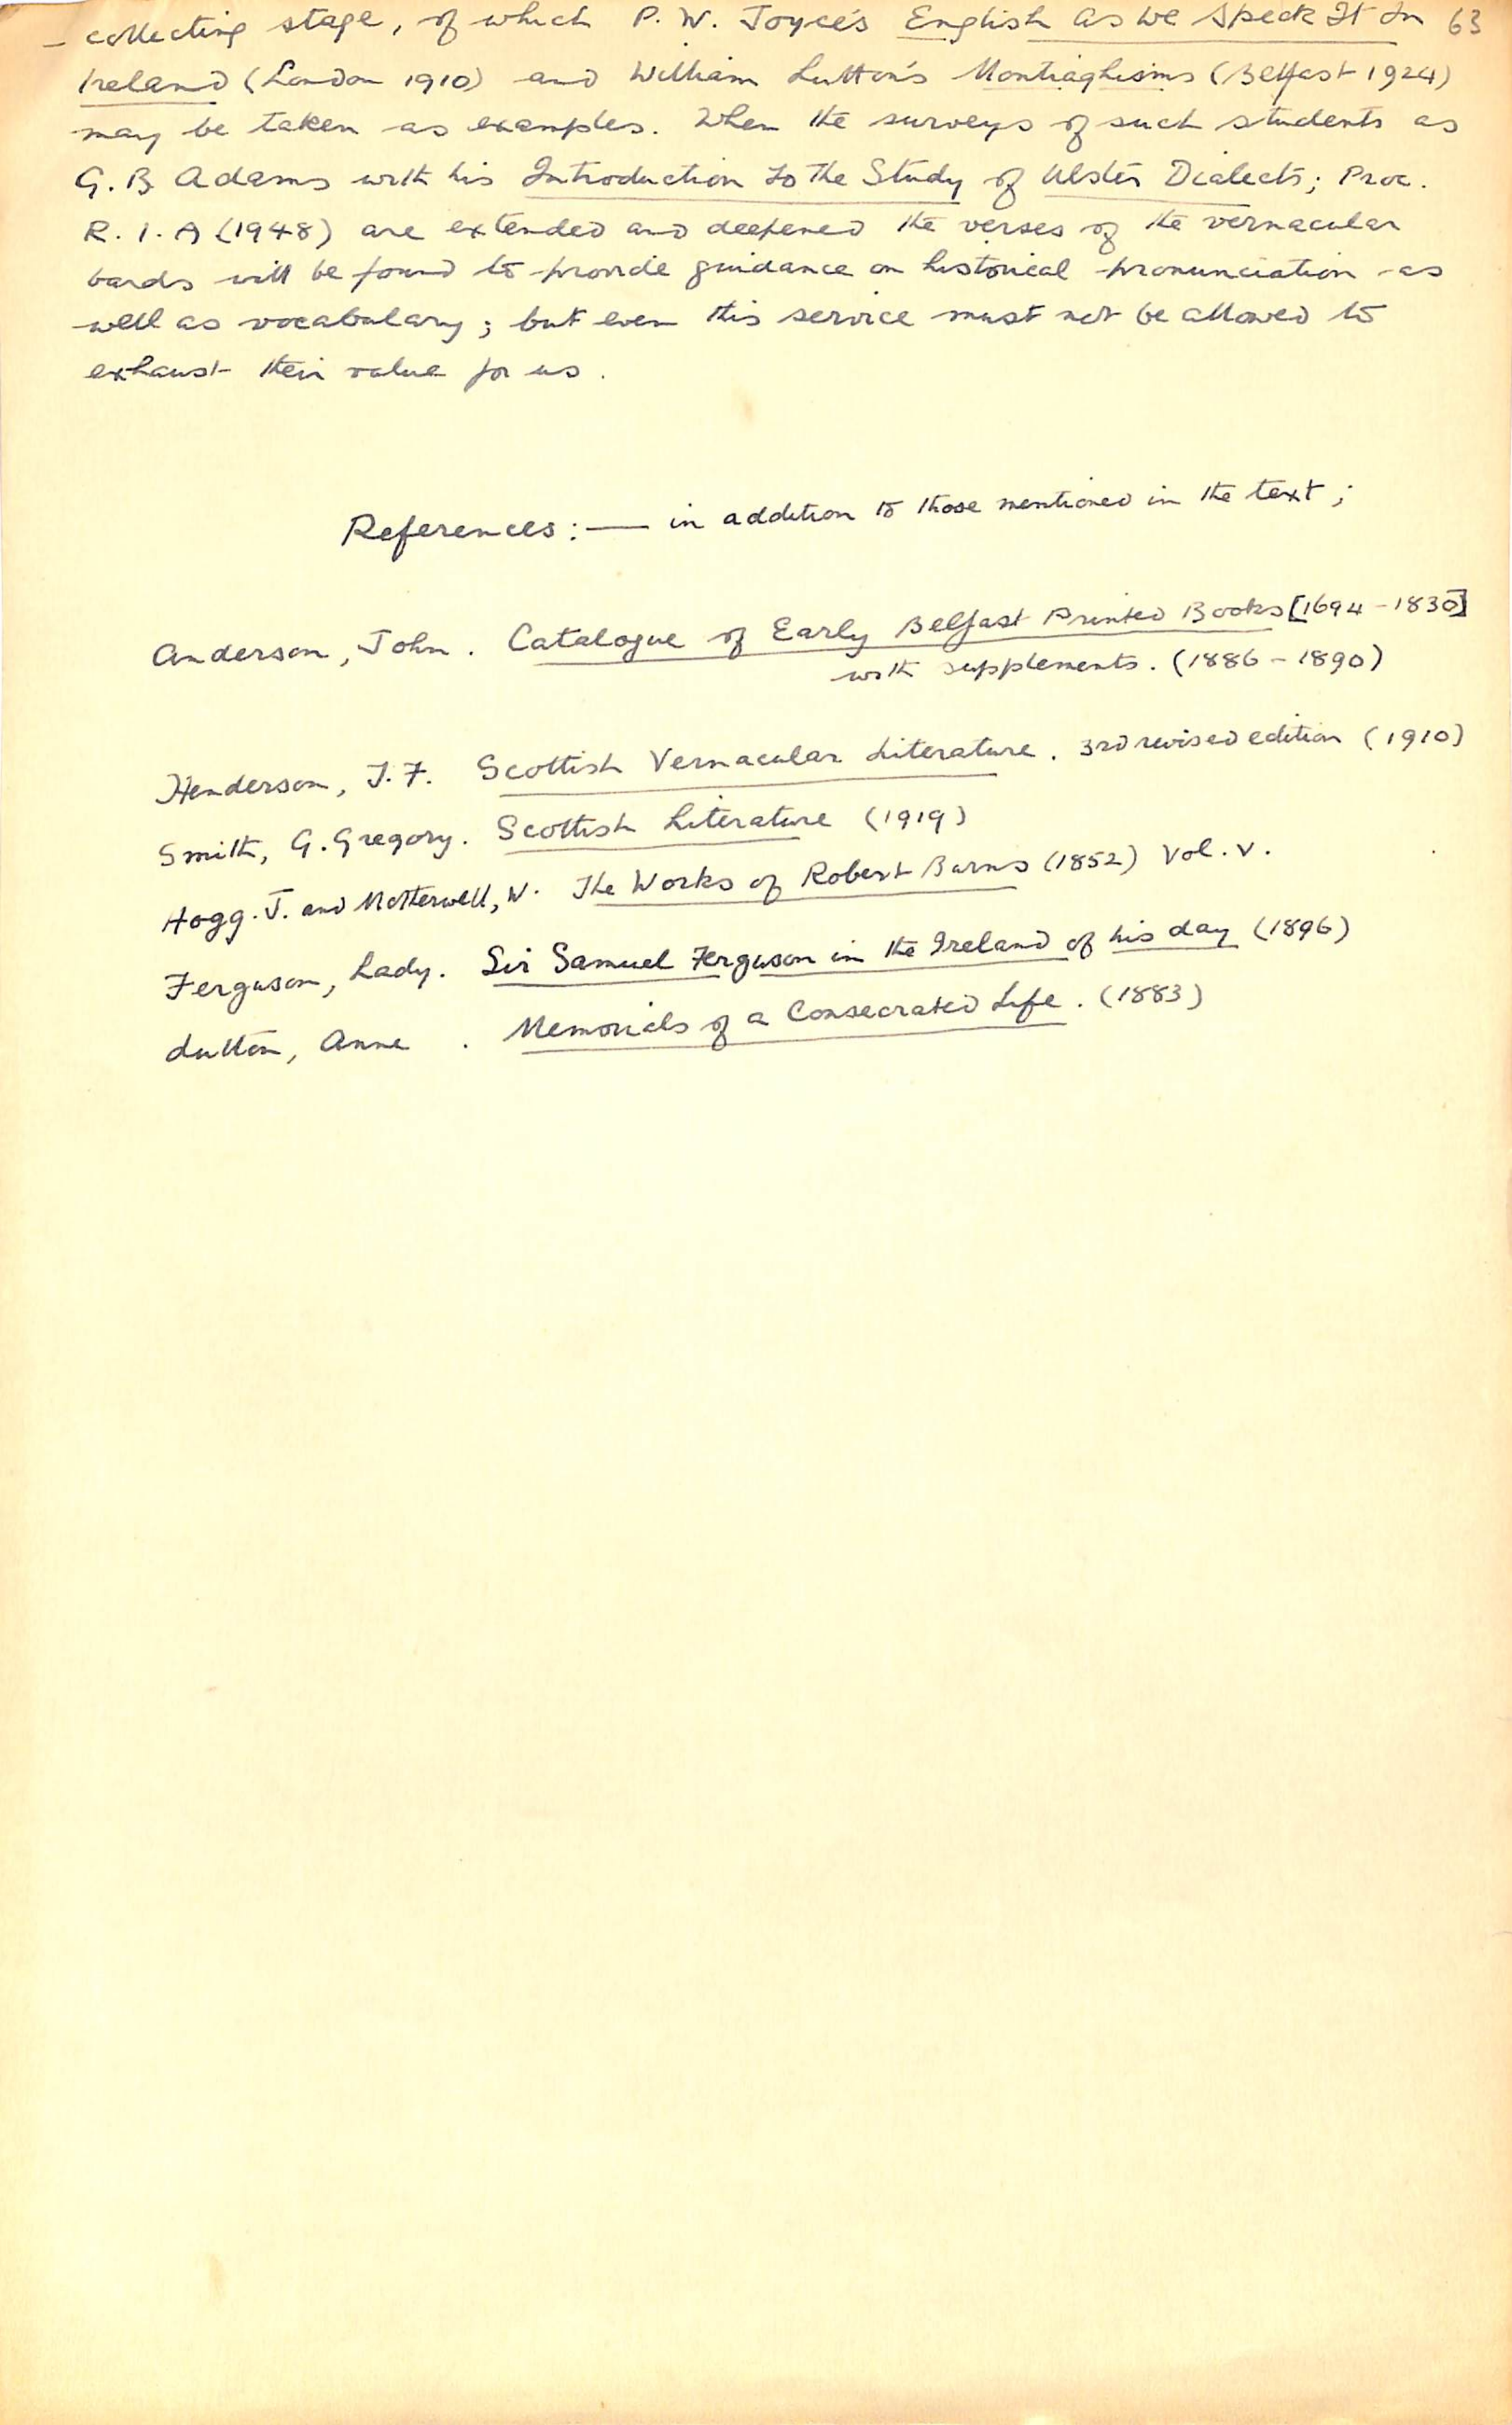 - collecting stage, of which P. W. Joyce's English As We Speak It In 63
Ireland (London 1910) and William Lutton's Montiaghisms (Belfast 1924)
may be taken as examples. When the surveys of such students as
G. B Adams with his Introduction to the Study of Ulster Dialects; Proc.
R. I. A (1948) are extended and deepened the verses of the vernacular
bards will be found to provide guidance on historical pronunciation as
well as vocabulary; but even this service must not be allowed to
exhaust their value for us.
References:— in addition to those mentioned in the text;
Anderson, John. Catalogue of Early Belfast Printed Books [1694-1830]
with supplements. (1886-1890)
Henderson, T. F. Scottish Vernacular Literature. 3rd revised edition (1910)
Smith, G. Gregory. Scottish Literature (1919)
Hogg. J. and Motterwell, W. The Works of Robert Burns (1852) Vol. V.
Ferguson, Lady. Sir Samuel Ferguson in the Ireland of his day (1896)
Lutton, Anne. Memorials of a Consecrated Life. (1883)